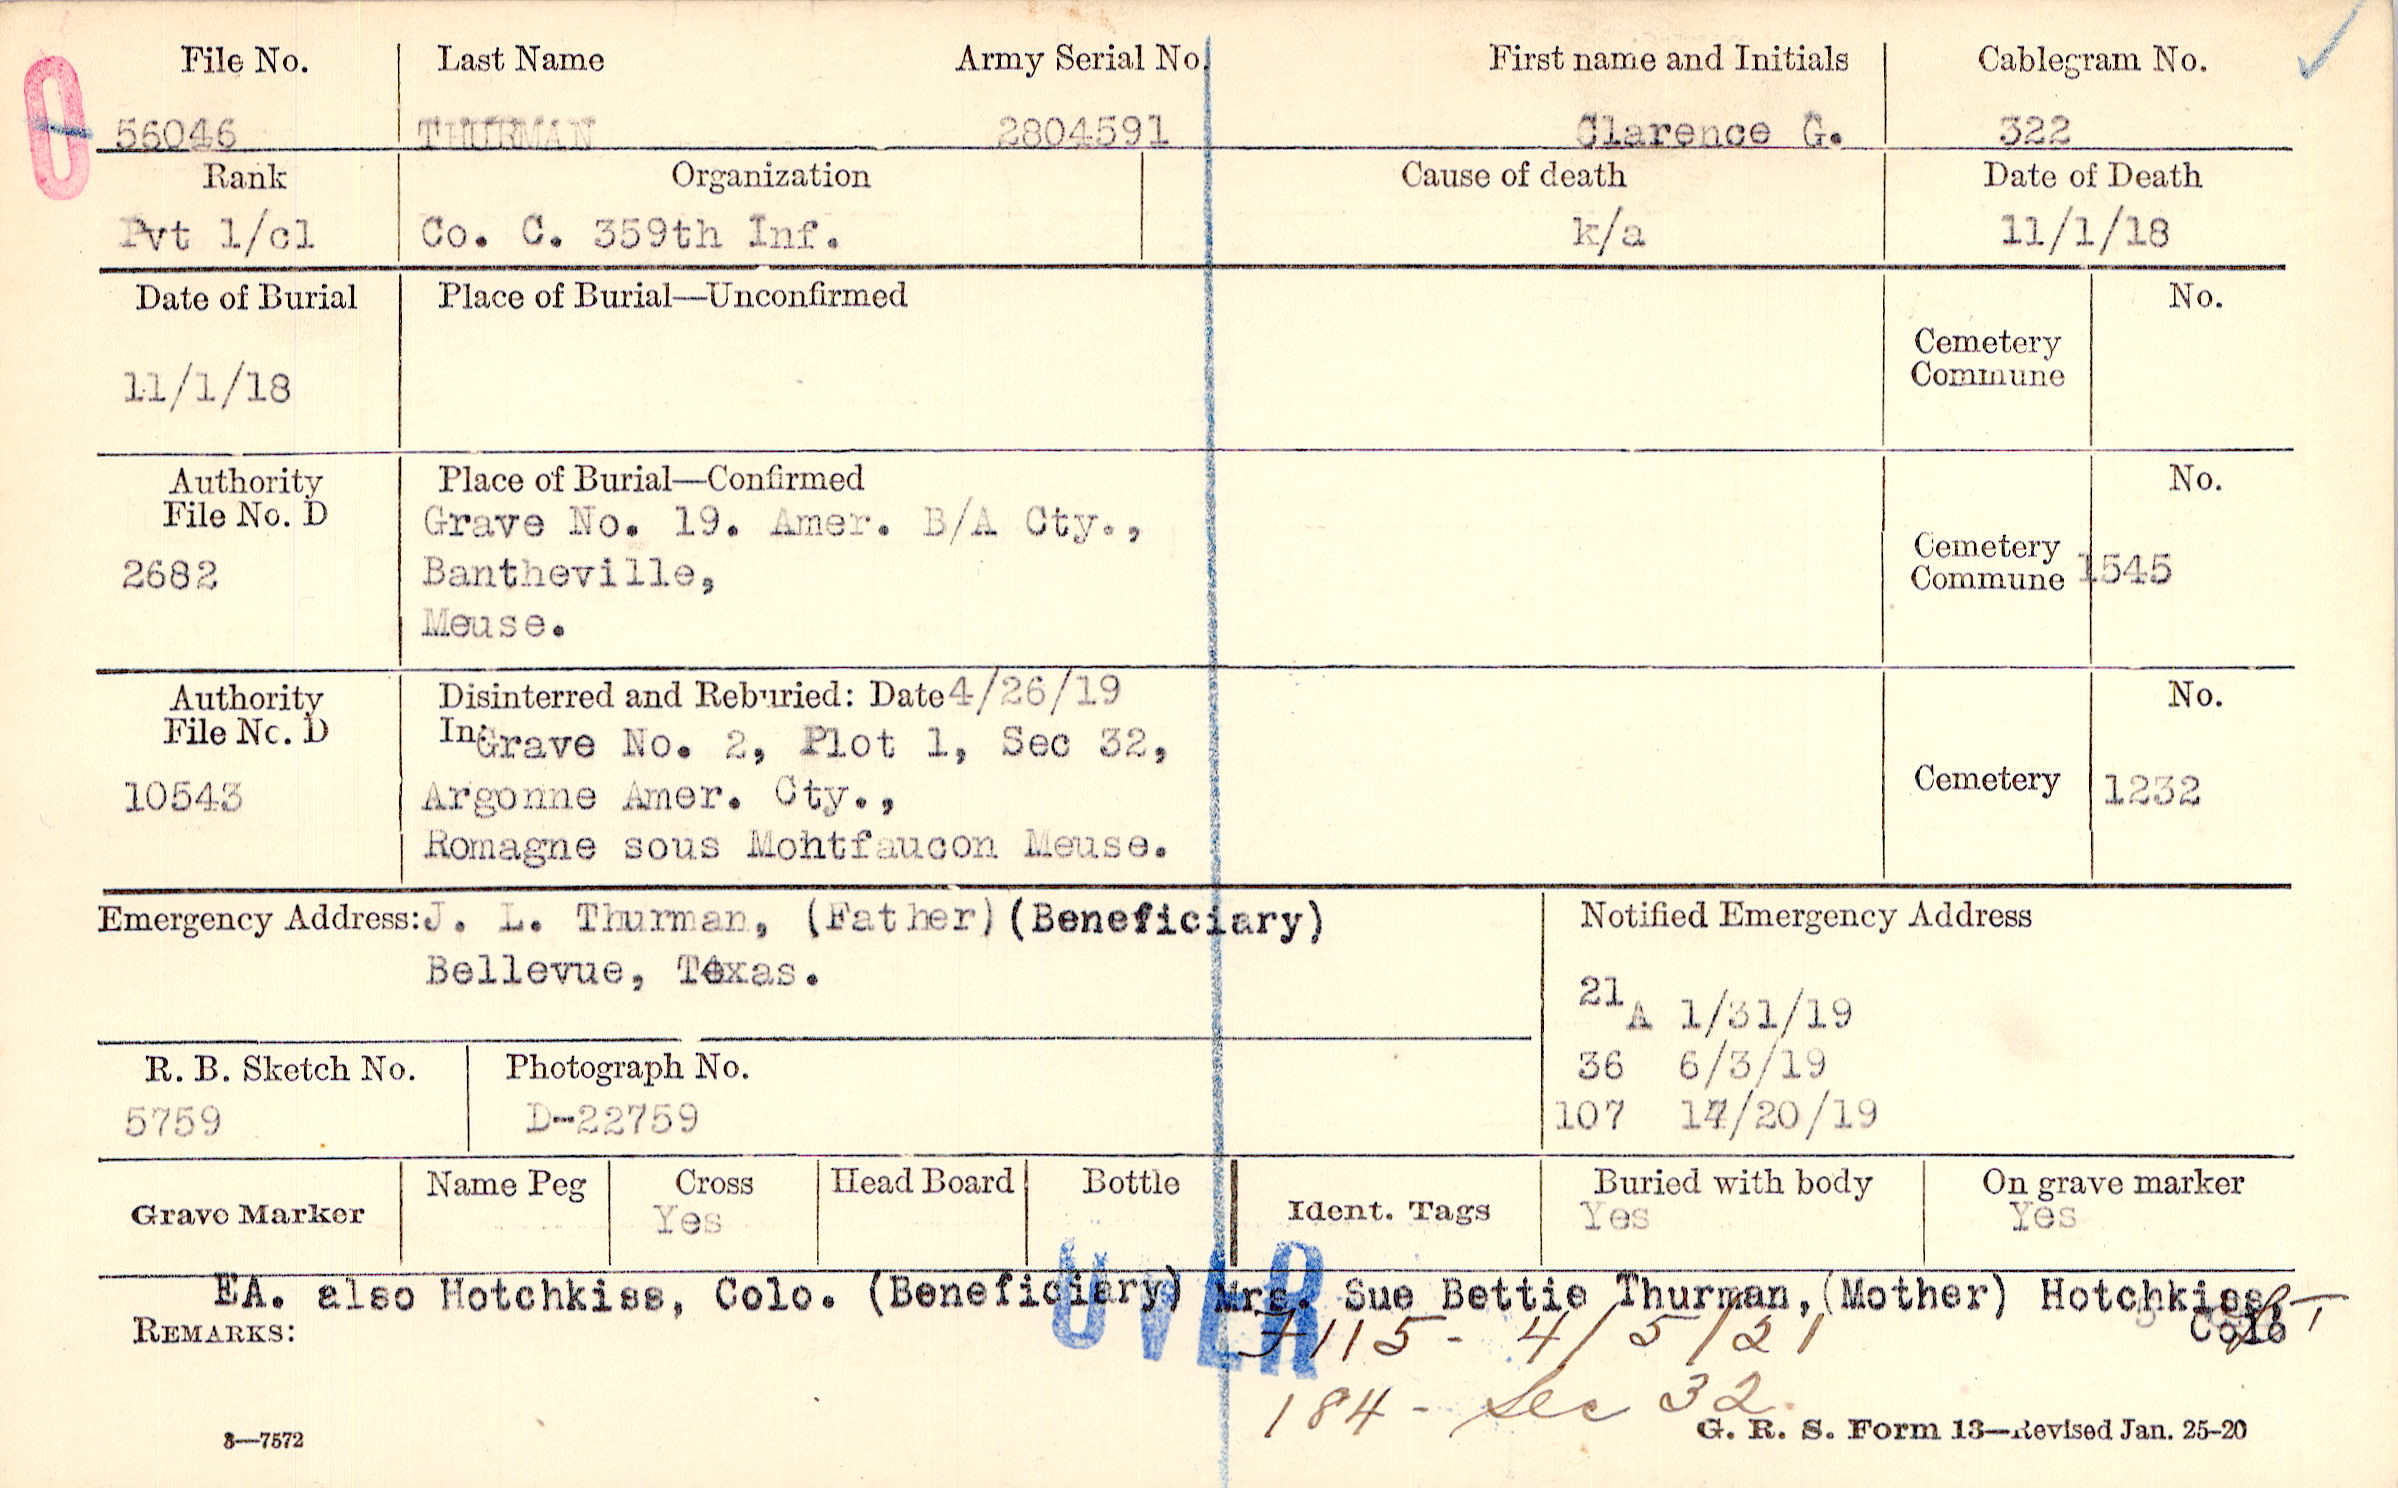 File No. Last Name Army Serial No. First name and Initials Cablegram No.
56046 THURMAN 2804591 Clarence G. 322
Rank Organization Cause of death Date of Death
Pvt 1/cl Co. C. 359th Inf. k/a 11/1/18
Date of Burial Place of Burial—Unconfirmed No.
Cemetery
Commune
11/1/18
Authority Place of Burial—Confirmed No.
File No. D Grave No. 19. Amer. B/A Cty.,
Cemetery
2682 Bantheville, Commune 1545
Meuse.
Authority Disinterred and Reburied: Date 4/26/19 No.
File No. D In: Grave No. 2, Plot 1, Sec 32,
10543 Argonne Amer. Cty., Cemetery 1232
Romagne sous Mohtfaucon Meuse.
Emergency Address: J. L. Thurman, (Father) (Beneficiary) Notified Emergency Address
Bellevue, Texas.
21 A 1/31/19
R. B. Sketch No. Photograph No. 36 6/3/19
5759 D-22759 107 /20/19
Grave Marker Name Peg Cross Head Board Bottle Ident. Tags Buried with body On grave marker
Yes Yes Yes
EA. also Hotchkiss, Colo. (Beneficiary) Mrs. Sue Bettie Thurman, (Mother) Hotchkiss,
Colo
OVER
REMARKS: 115 - 4/5/21
184 - Sec 32
3—7572 G. R. S. Form 13—Revised Jan. 25-20